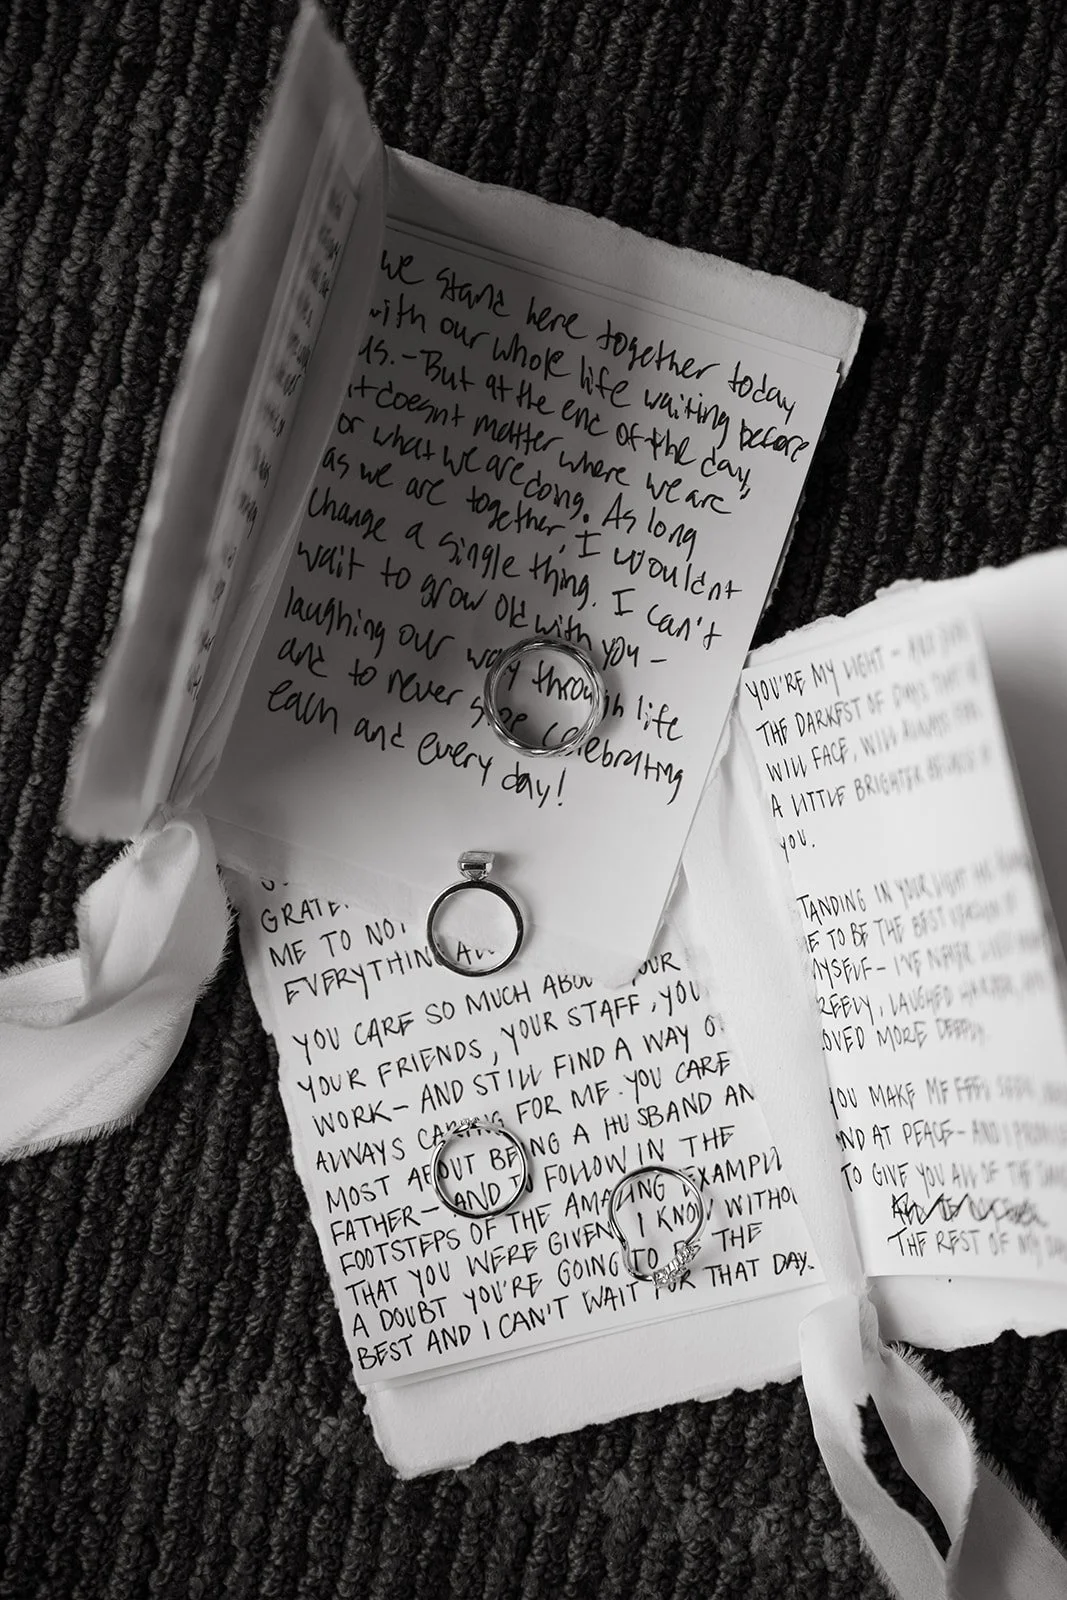 we stand here together today
with our whole life waiting before
us. - But at the end of the day,
it doesnt matter where we are
or what we are doing. As long
as we are together, I wouldnt
change a single thing. I can't
wait to grow old with you -
laughing our way through life
and to never stop celebrating
each and every day!
GRATE
ME TO NOT
EVERYTHING
YOU CARE SO MUCH ABOUT YOUR
YOUR FRIENDS, YOUR STAFF, YOU
WORK - AND STILL FIND A WAY O
ALWAYS CARING FOR ME. YOU CARE
MOST ABOUT BEING A HUSBAND AN
FATHER - AND TO FOLLOW IN THE
FOOTSTEPS OF THE AMAZING EXAMPLE
THAT YOU WERE GIVEN. I KNOW WITHOU
A DOUBT YOU'RE GOING TO BE THE
BEST AND I CAN'T WAIT FOR THAT DAY.
YOU'RE MY LIGHT - AND EVEN
THE DARKEST OF DAYS THAT WE
WILL FACE, WILL ALWAYS FEEL
A LITTLE BRIGHTER BECAUSE OF
YOU.
TANDING IN YOUR LIGHT HAS
E TO BE THE BEST VERSION OF
MYSELF - I'VE NEVER
REELY, LAUGHED HARDER,
OVED MORE DEEPLY.
YOU MAKE ME FEEL SEEN,
AND AT PEACE - AND I PROMISE
TO GIVE YOU ALL OF THE SAME
THE REST OF MY DAYS